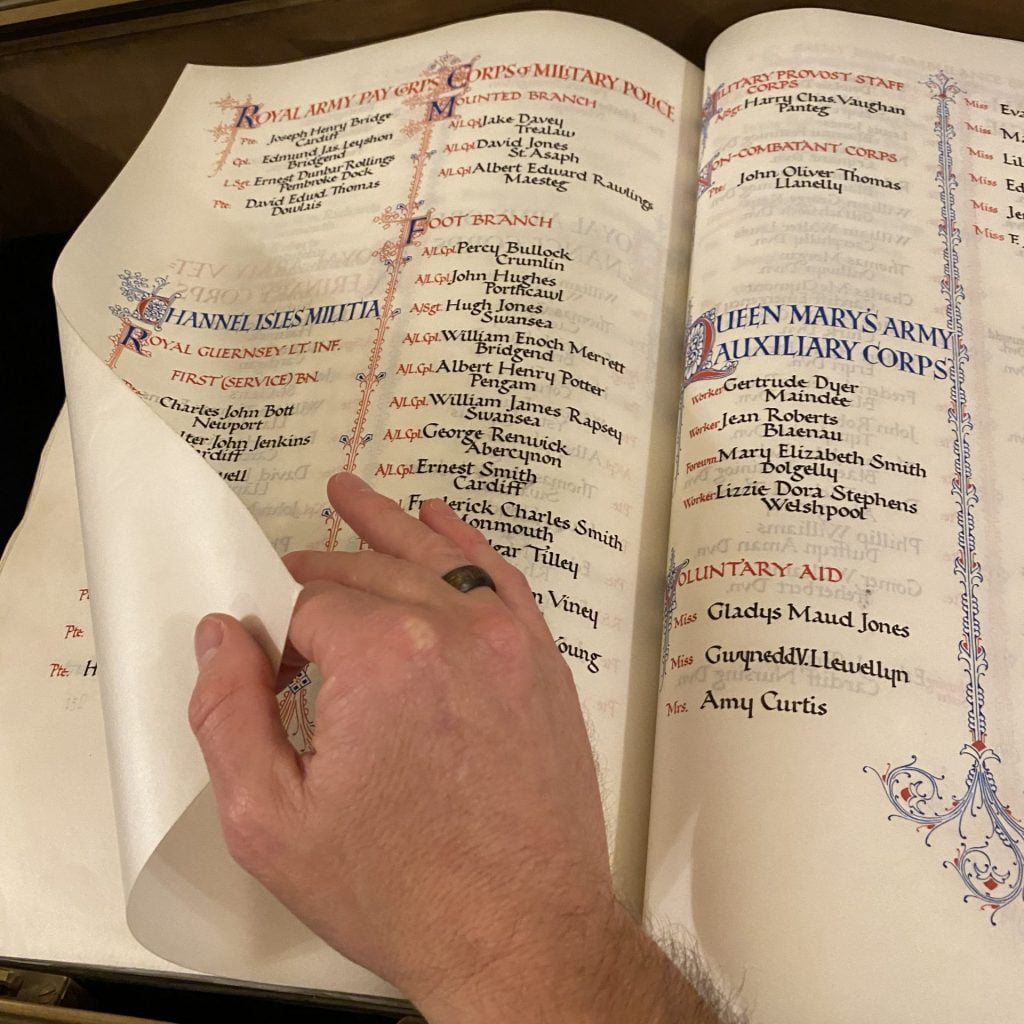 ROYAL ARMY PAY CORPS
Pte. Joseph Henry Bridge
Cardiff
Cpl. Edmund Jas. Leyshon
Bridgend
L.Sgt. Ernest Dunbar Rollings
Pembroke Dock
Pte. David Edwd. Thomas
Dowlais
CHANNEL ISLES MILITIA
ROYAL GUERNSEY LT. INF.
FIRST (SERVICE) BN.
Charles John Bott
Newport
John Jenkins
Pte.
Pte. H
CORPS OF MILITARY POLICE
MOUNTED BRANCH
A/L.Cpl. Jake Davey
Trealaw
A/L.Cpl. David Jones
St. Asaph
A/L.Cpl. Albert Edward Rawlings
Maesteg
FOOT BRANCH
A/L.Cpl. Percy Bullock
Crumlin
A/L.Cpl. John Hughes
Porthcawl
A/Sgt. Hugh Jones
Swansea
A/L.Cpl. William Enoch Merrett
Bridgend
A/L.Cpl. Albert Henry Potter
Pengam
A/L.Cpl. William James Rapsey
Swansea
A/L.Cpl. George Renwick
Abercynon
A/L.Cpl. Ernest Smith
Cardiff
Frederick Charles Smith
Monmouth
Tilley
Viney
Young
MILITARY PROVOST STAFF
CORPS
A/Sgt. Harry Chas. Vaughan
Panteg
NON-COMBATANT CORPS
Pte. John Oliver Thomas
Llanelly
QUEEN MARY'S ARMY
AUXILIARY CORPS
Worker Gertrude Dyer
Maindee
Worker Jean Roberts
Blaenau
Forewn. Mary Elizabeth Smith
Dolgelly
Worker Lizzie Dora Stephens
Welshpool
VOLUNTARY AID
Miss Gladys Maud Jones
Miss Gwynedd V. Llewellyn
Mrs. Amy Curtis
Miss
Miss
Miss
Miss
Miss
Miss